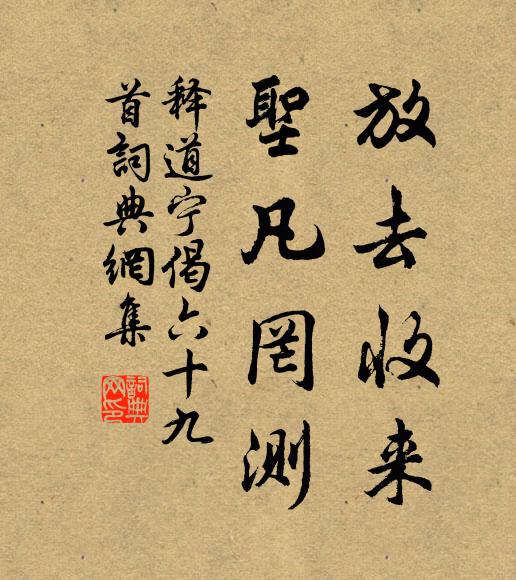 放去收来
聖凡罔测
释道宁偈六十九
首詞典網集
詞典
网印